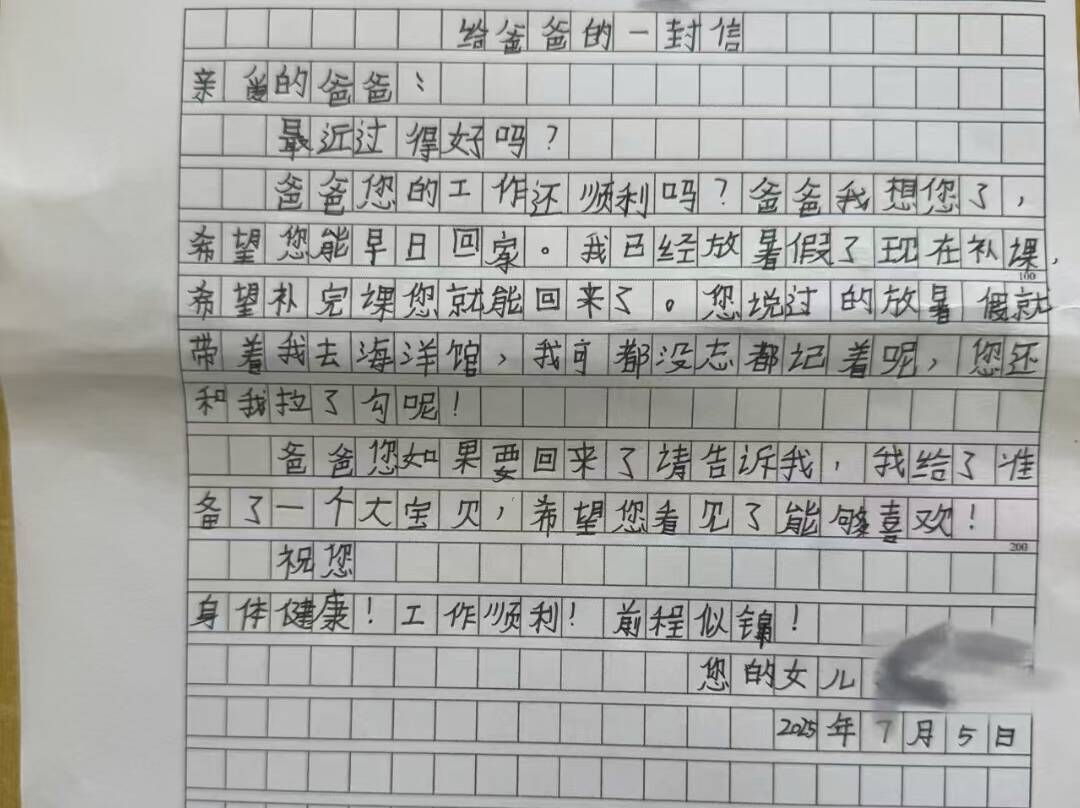 给爸爸的一封信
亲爱的爸爸：
最近过得好吗？
爸爸您的工作还顺利吗？爸爸我想您了，
希望您能早日回家。我已经放暑假了现在补课，
100
希望补完课您就能回来了。您说过的放暑假就
带着我去海洋馆，我可都没忘都记着呢，您还
和我拉了勾呢！
爸爸您如果要回来了请告诉我，我给了准
备了一个大宝贝，希望您看见了能够喜欢！
200
祝您
身体健康！工作顺利！前程似锦！
您的女儿
2025年7月5日